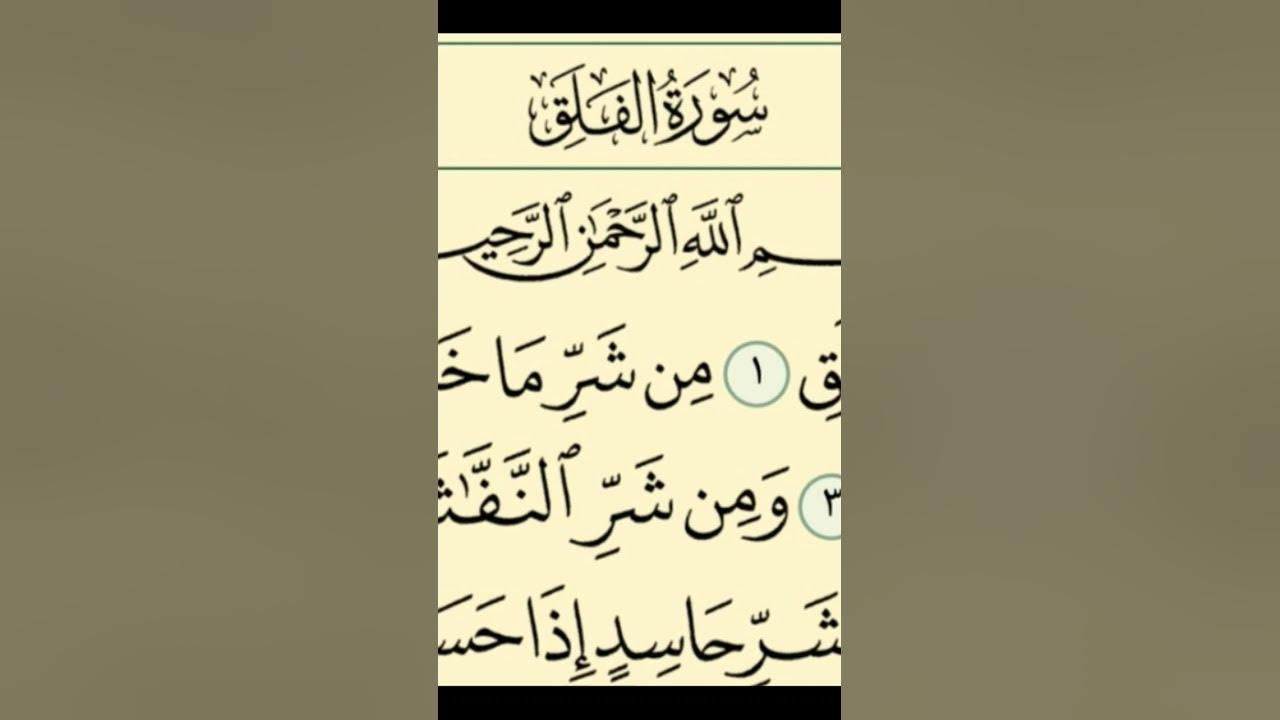 سُورَةُ الفَلَقِ
ـمِ ٱللَّهِ ٱلرَّحْمَٰنِ ٱلرَّحِيـ
ـَقِ ١ مِن شَرِّ مَا خَـ
٣ وَمِن شَرِّ ٱلنَّفَّٰثَـ
شَرِّ حَاسِدٍ إِذَا حَسَـ